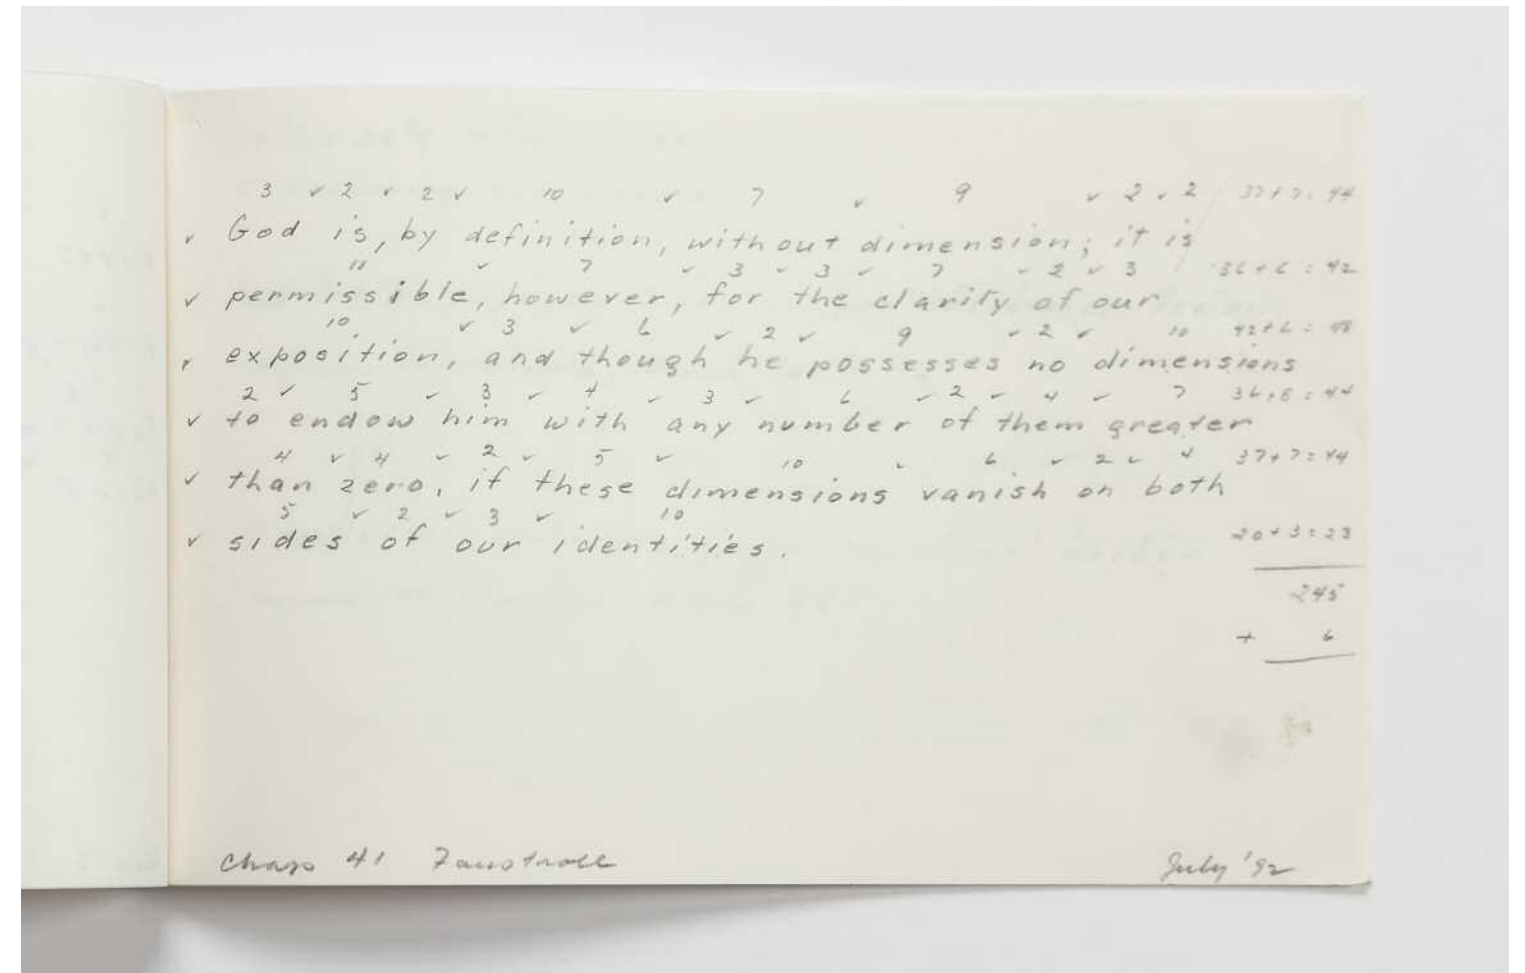 3 ✓ 2 ✓ 2 ✓ 10 ✓ 7 ✓ 9 ✓ 2 ✓ 2 37+7=44
✓ God is, by definition, without dimension; it is
11 ✓ 7 ✓ 3 ✓ 3 ✓ 7 ✓ 2 ✓ 3 36+6=42
✓ permissible, however, for the clarity of our
10 ✓ 3 ✓ 6 ✓ 2 ✓ 9 ✓ 2 ✓ 10 42+6=48
✓ exposition, and though he possesses no dimensions
2 ✓ 5 ✓ 3 ✓ 4 ✓ 3 ✓ 6 ✓ 2 ✓ 4 ✓ 7 36+8=44
✓ to endow him with any number of them greater
4 ✓ 4 ✓ 2 ✓ 5 ✓ 10 ✓ 6 ✓ 2 ✓ 4 37+7=44
✓ than zero, if these dimensions vanish on both
5 ✓ 2 ✓ 3 ✓ 10
20+3=23
✓ sides of our identities.
245
+ 6
Chap 41 Faustroll July '92